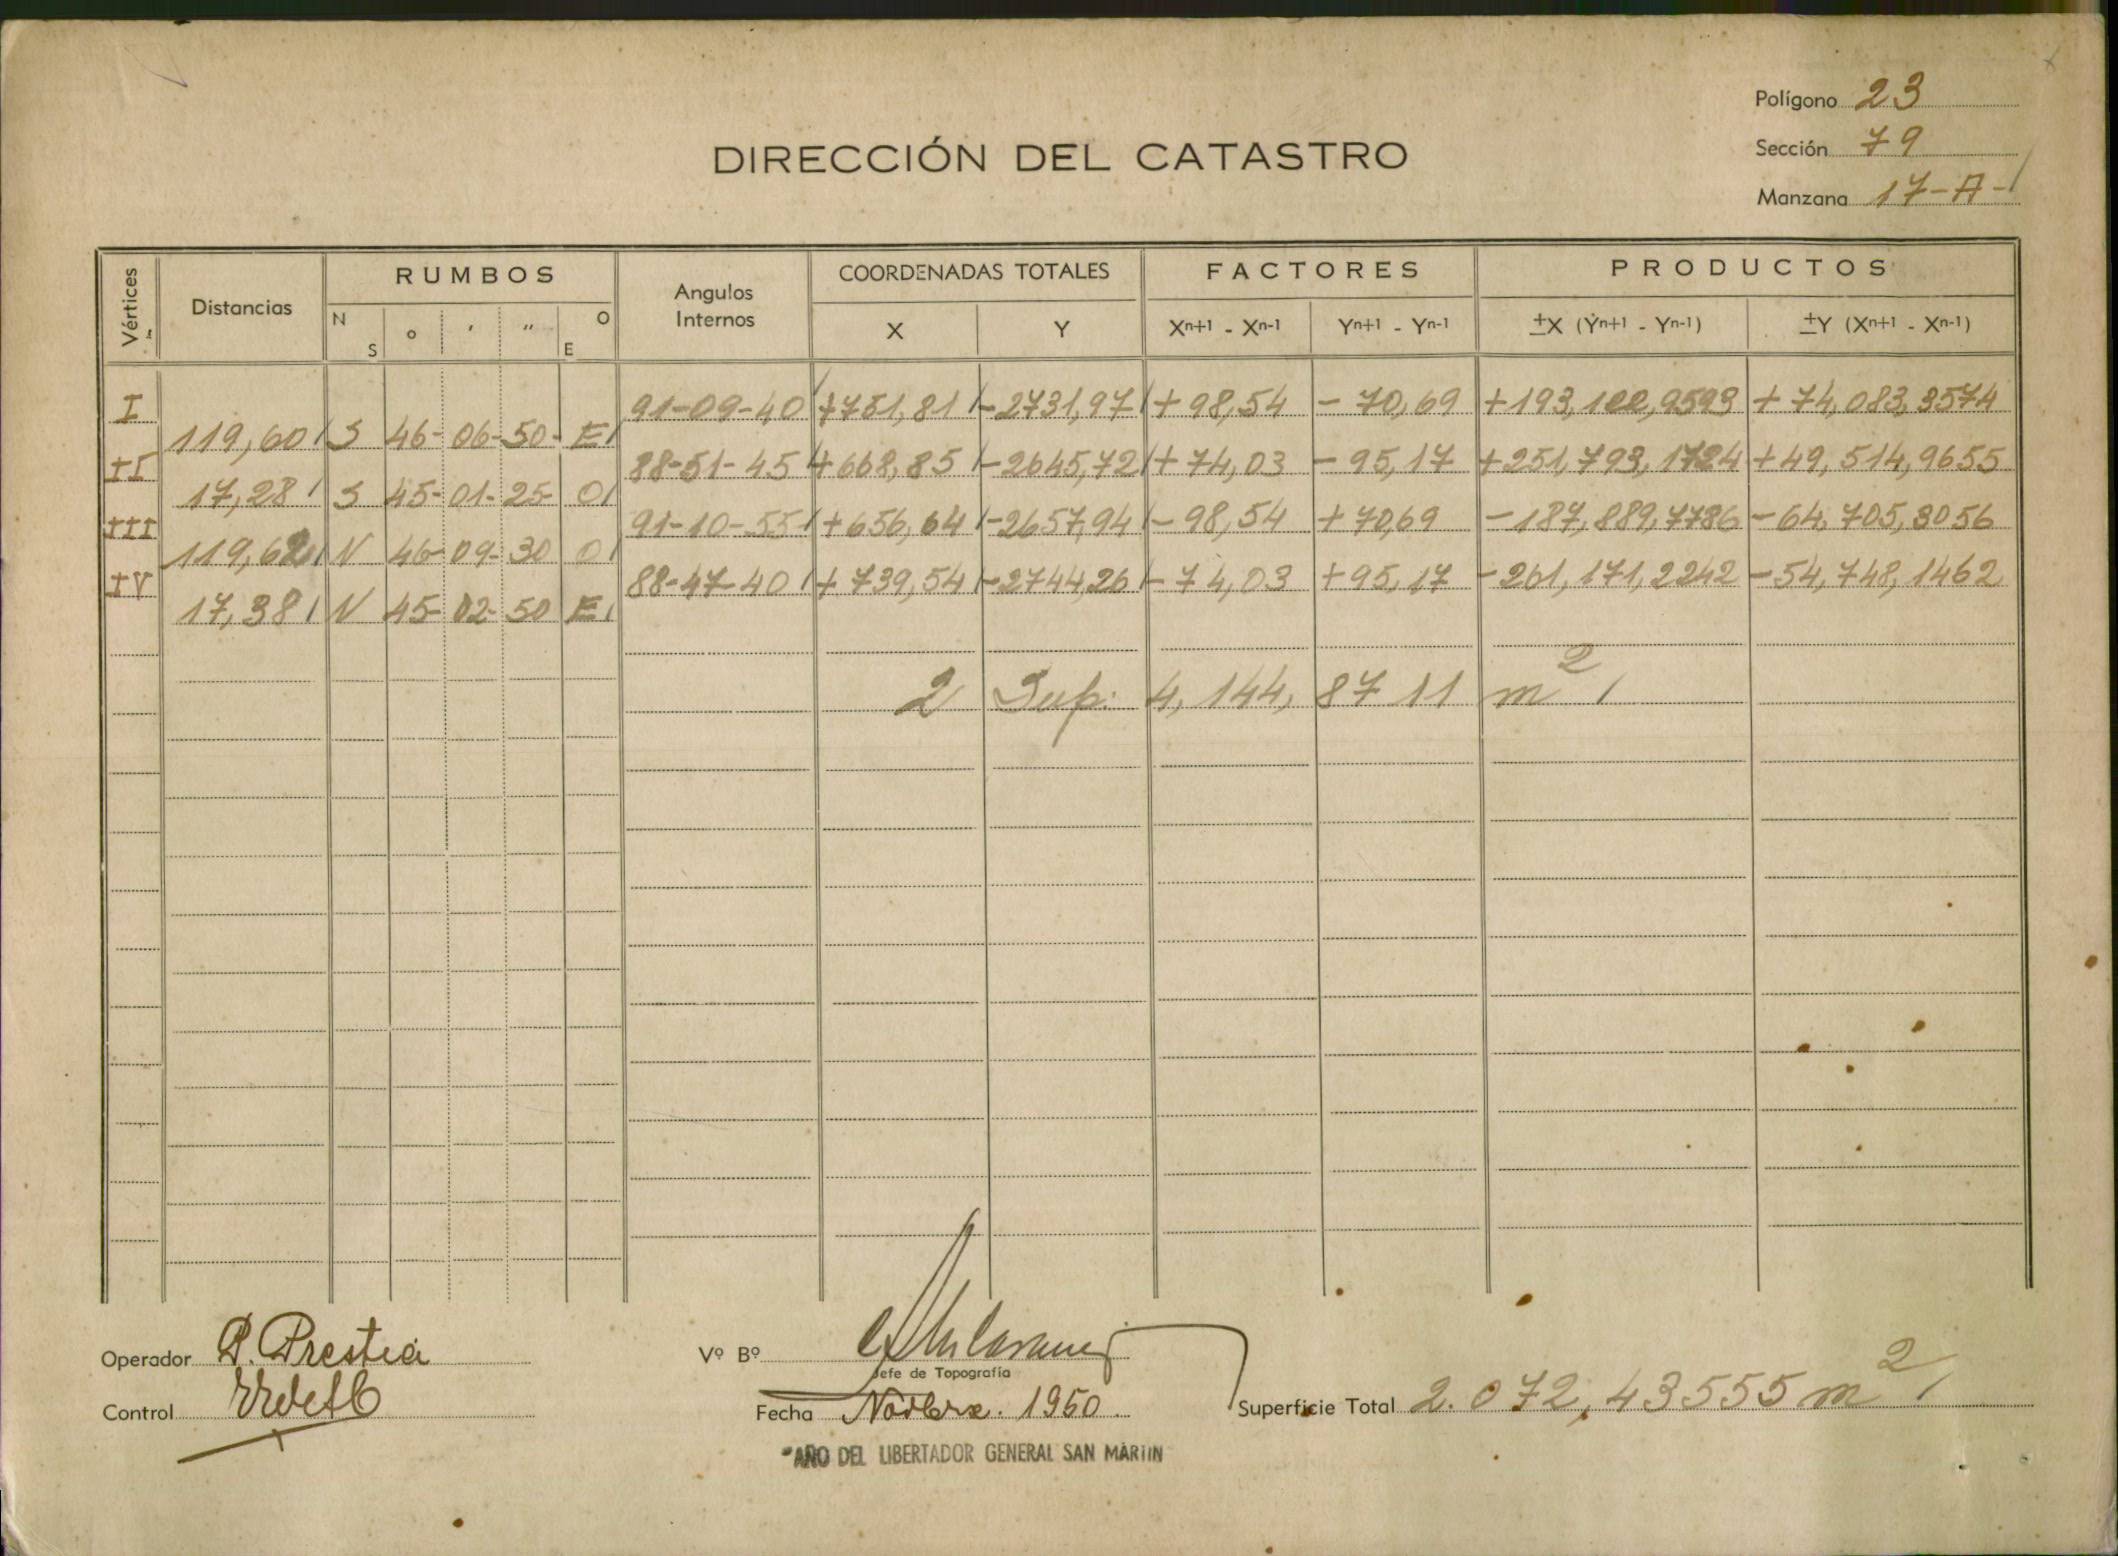 Polígono 23
DIRECCIÓN DEL CATASTRO
Sección 79
Manzana 17-A-
Vértices Distancias RUMBOS Angulos Internos COORDENADAS TOTALES FACTORES PRODUCTOS
N S o ' " O E X Y Xn+1 - Xn-1 Yn+1 - Yn-1 ±X (Yn+1 - Yn-1) ±Y (Xn+1 - Xn-1)
I 91-09-40 +751,81 -2731,97 +98,54 -70,69 +193,122,9593 +74,083,3574
119,60 S 46- 06- 50- E
II 88-51-45 +668,85 -2645,72 +74,03 -95,17 +251,793,1724 +49,514,9655
17,28 S 45- 01- 25- O
III 91-10-55 +656,64 -2657,94 -98,54 +70,69 -187,889,7786 -64,705,3056
119,62 N 46- 09- 30 O
IV 88-47-40 +739,54 -2744,26 -74,03 +95,17 -261,171,2242 -54,748,1462
17,38 N 45- 02- 50 E
2 Sup: 4,144,8711 m2
Operador P. Prestia
Vº Bº
Jefe de Topografía
Control
Fecha Novbre. 1950.
Superficie Total 2.072,43555 m2
AÑO DEL LIBERTADOR GENERAL SAN MARTIN